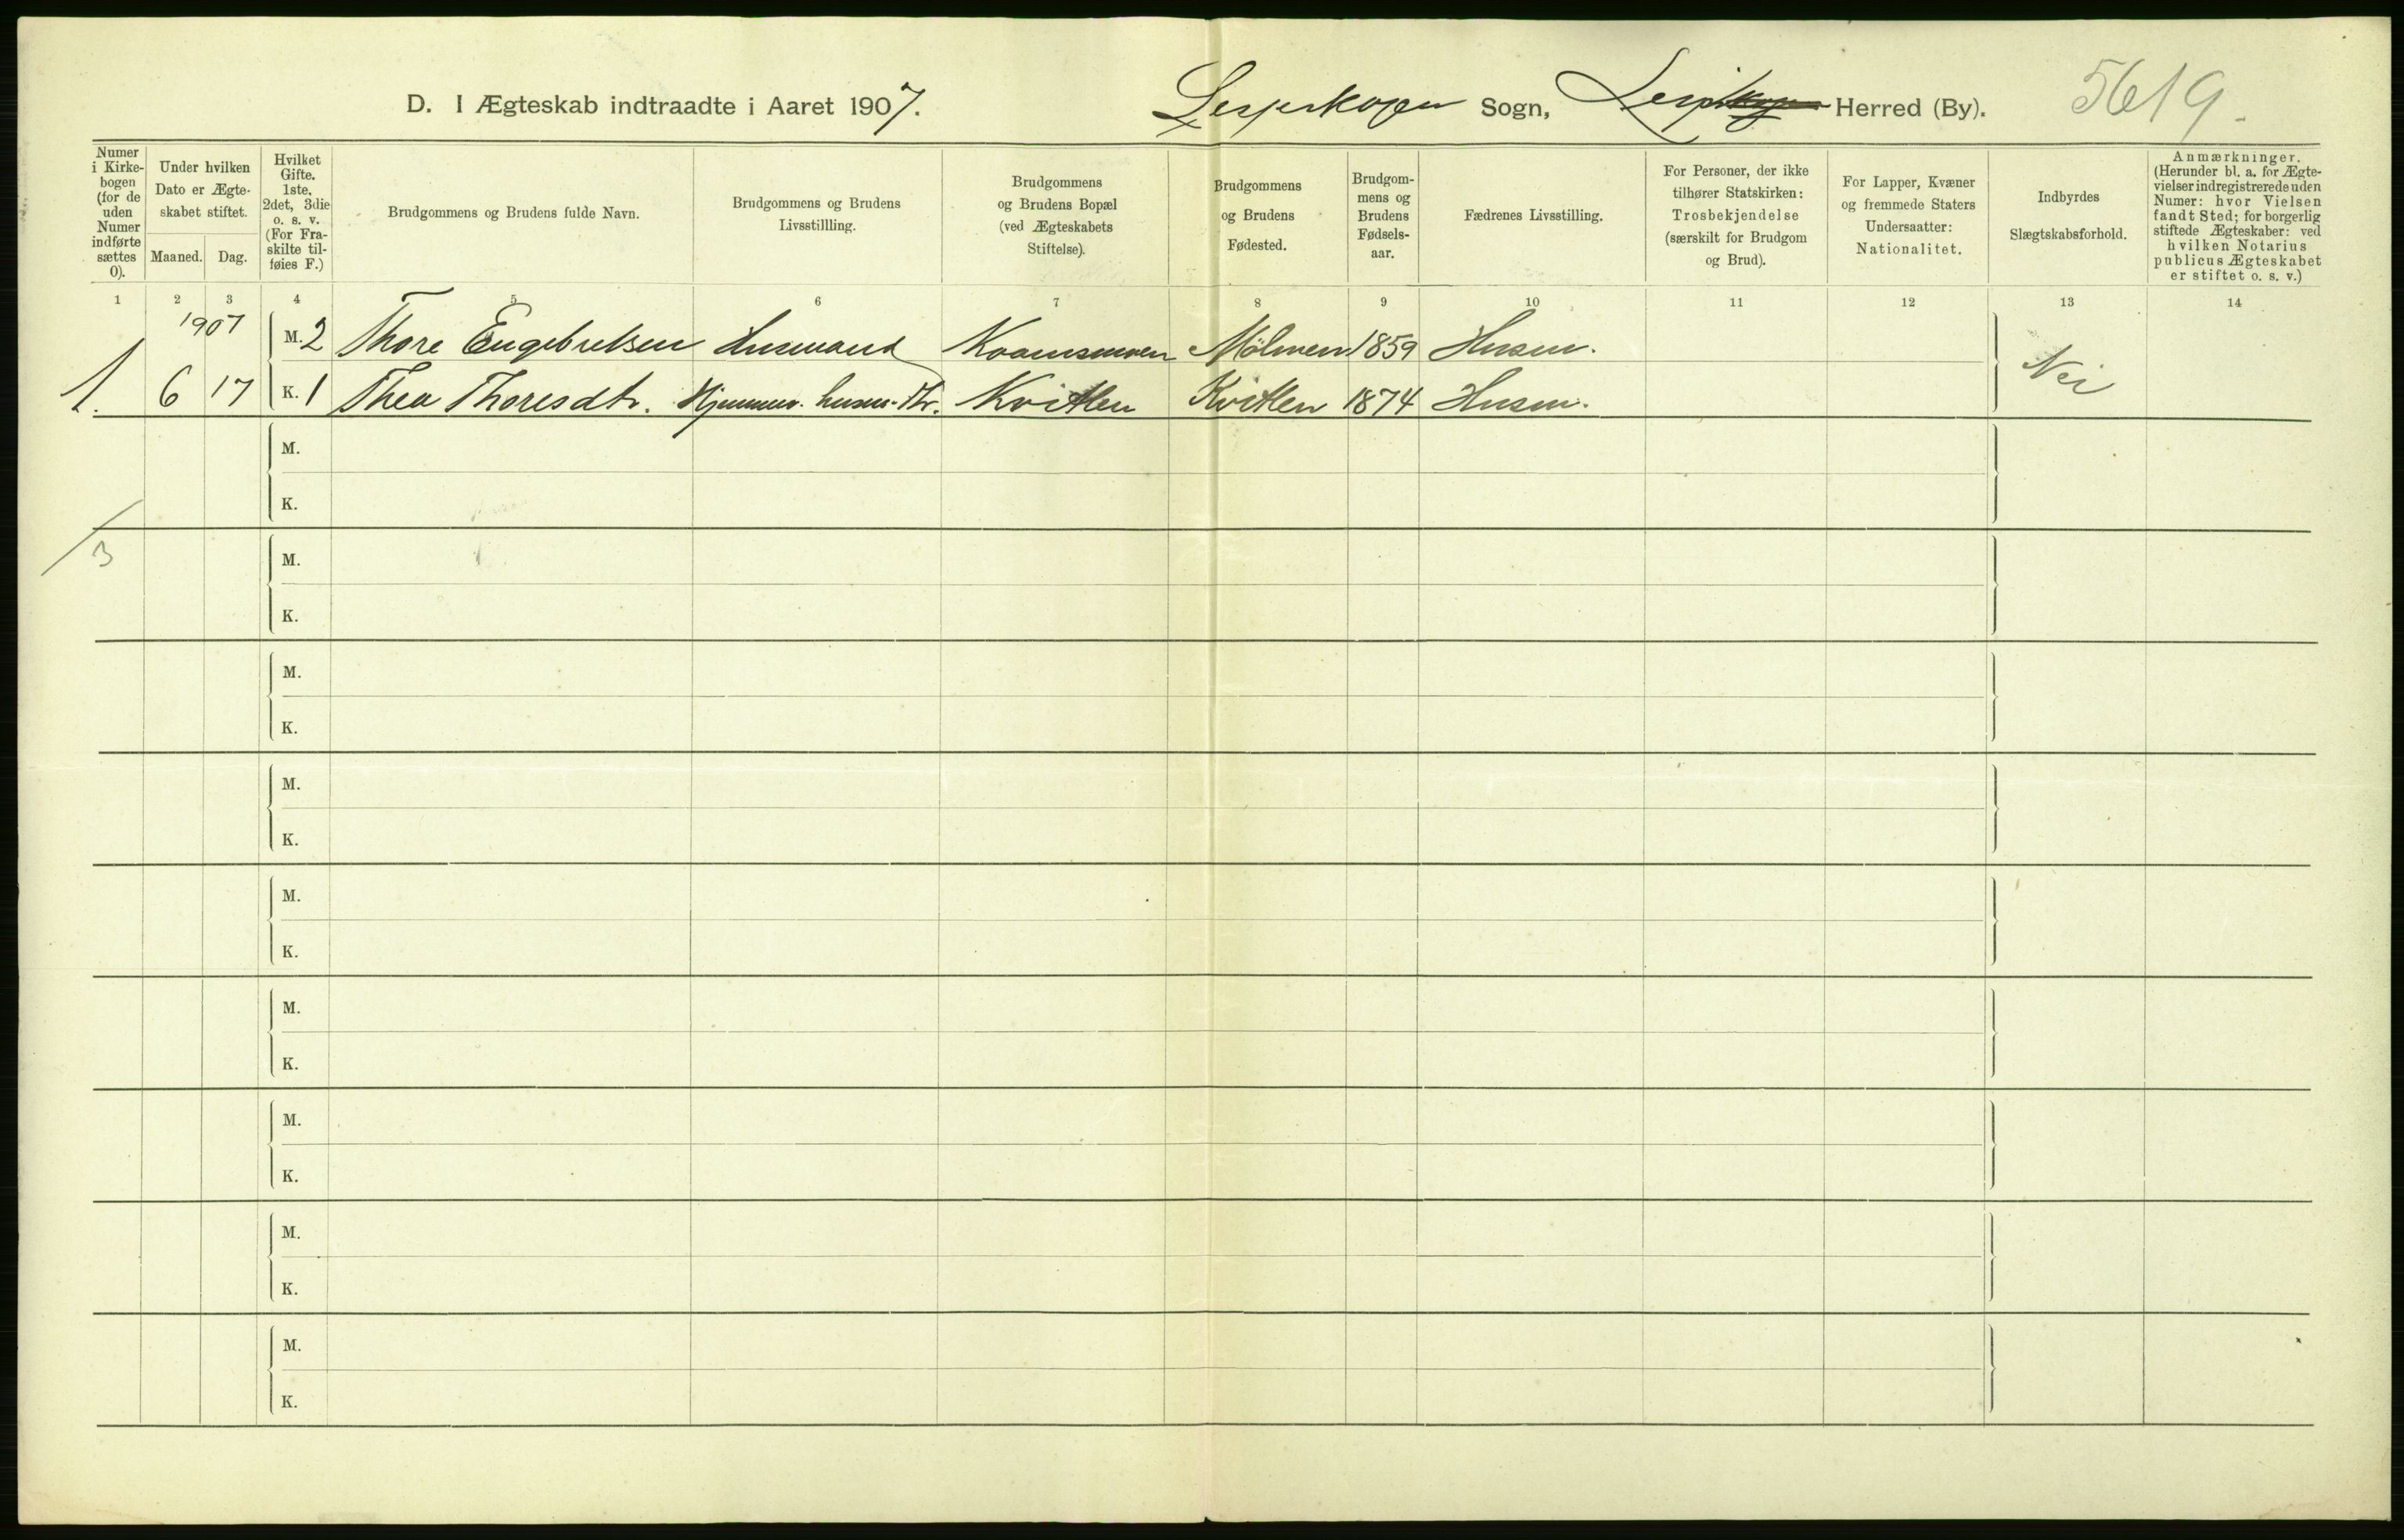 D. I Ægteskab indtraadte i Aaret 1907. Lesjeskogen Sogn, Lesjeskogen Herred (By). 5619.
Numer i Kirke-bogen (for de uden Numer indførte sættes 0).
Under hvilken Dato er Ægte-skabet stiftet.
Maaned. Dag.
Hvilket Gifte. 1ste, 2det, 3die o. s. v. (For Fra-skilte til-føies F.)
Brudgommens og Brudens fulde Navn.
Brudgommens og Brudens Livsstillling.
Brudgommens og Brudens Bopæl (ved Ægteskabets Stiftelse).
Brudgommens og Brudens Fødested.
Brudgom-mens og Brudens Fødsels-aar.
Fædrenes Livsstilling.
For Personer, der ikke tilhører Statskirken: Trosbekjendelse (særskilt for Brudgom og Brud).
For Lapper, Kvæner og fremmede Staters Undersaatter: Nationalitet.
Indbyrdes Slægtskabsforhold.
Anmærkninger. (Herunder bl. a. for Ægte-vielser indregistrerede uden Numer: hvor Vielsen fandt Sted; for borgerlig stiftede Ægteskaber: ved hvilken Notarius publicus Ægteskabet er stiftet o. s. v.)
1 2 3 4 5 6 7 8 9 10 11 12 13 14
1907 M. 2 Thore Engebretsen Husmand Mølmen 1859 Husm. Nei
1. 6 17 K. 1 Thea Thoresdtr. Hjemmev. husm. dtr. Kvitlen Kvitlen 1874 Husm.
M.
K.
3
M.
K.
M.
K.
M.
K.
M.
K.
M.
K.
M.
K.
M.
K.
M.
K.